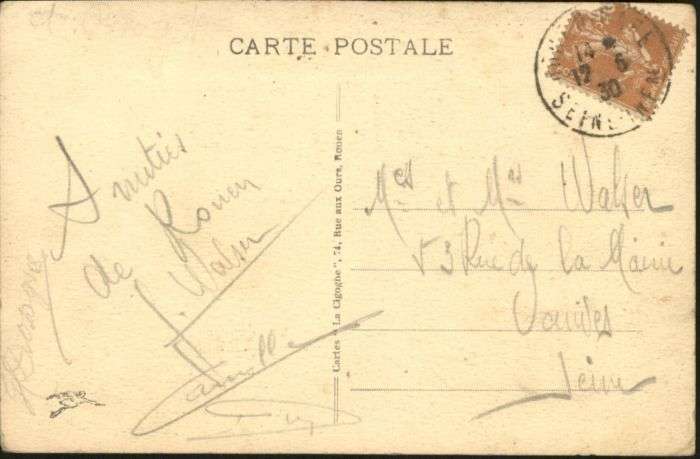 CARTE POSTALE
14 *
12 6
30
SEINE
Amitiés
de Rouen
Walser
Camille
Cartes "La Cigogne", 74, Rue aux Ours, Rouen
et Walser
53 Rue de la Mairie
Vanves
Seine